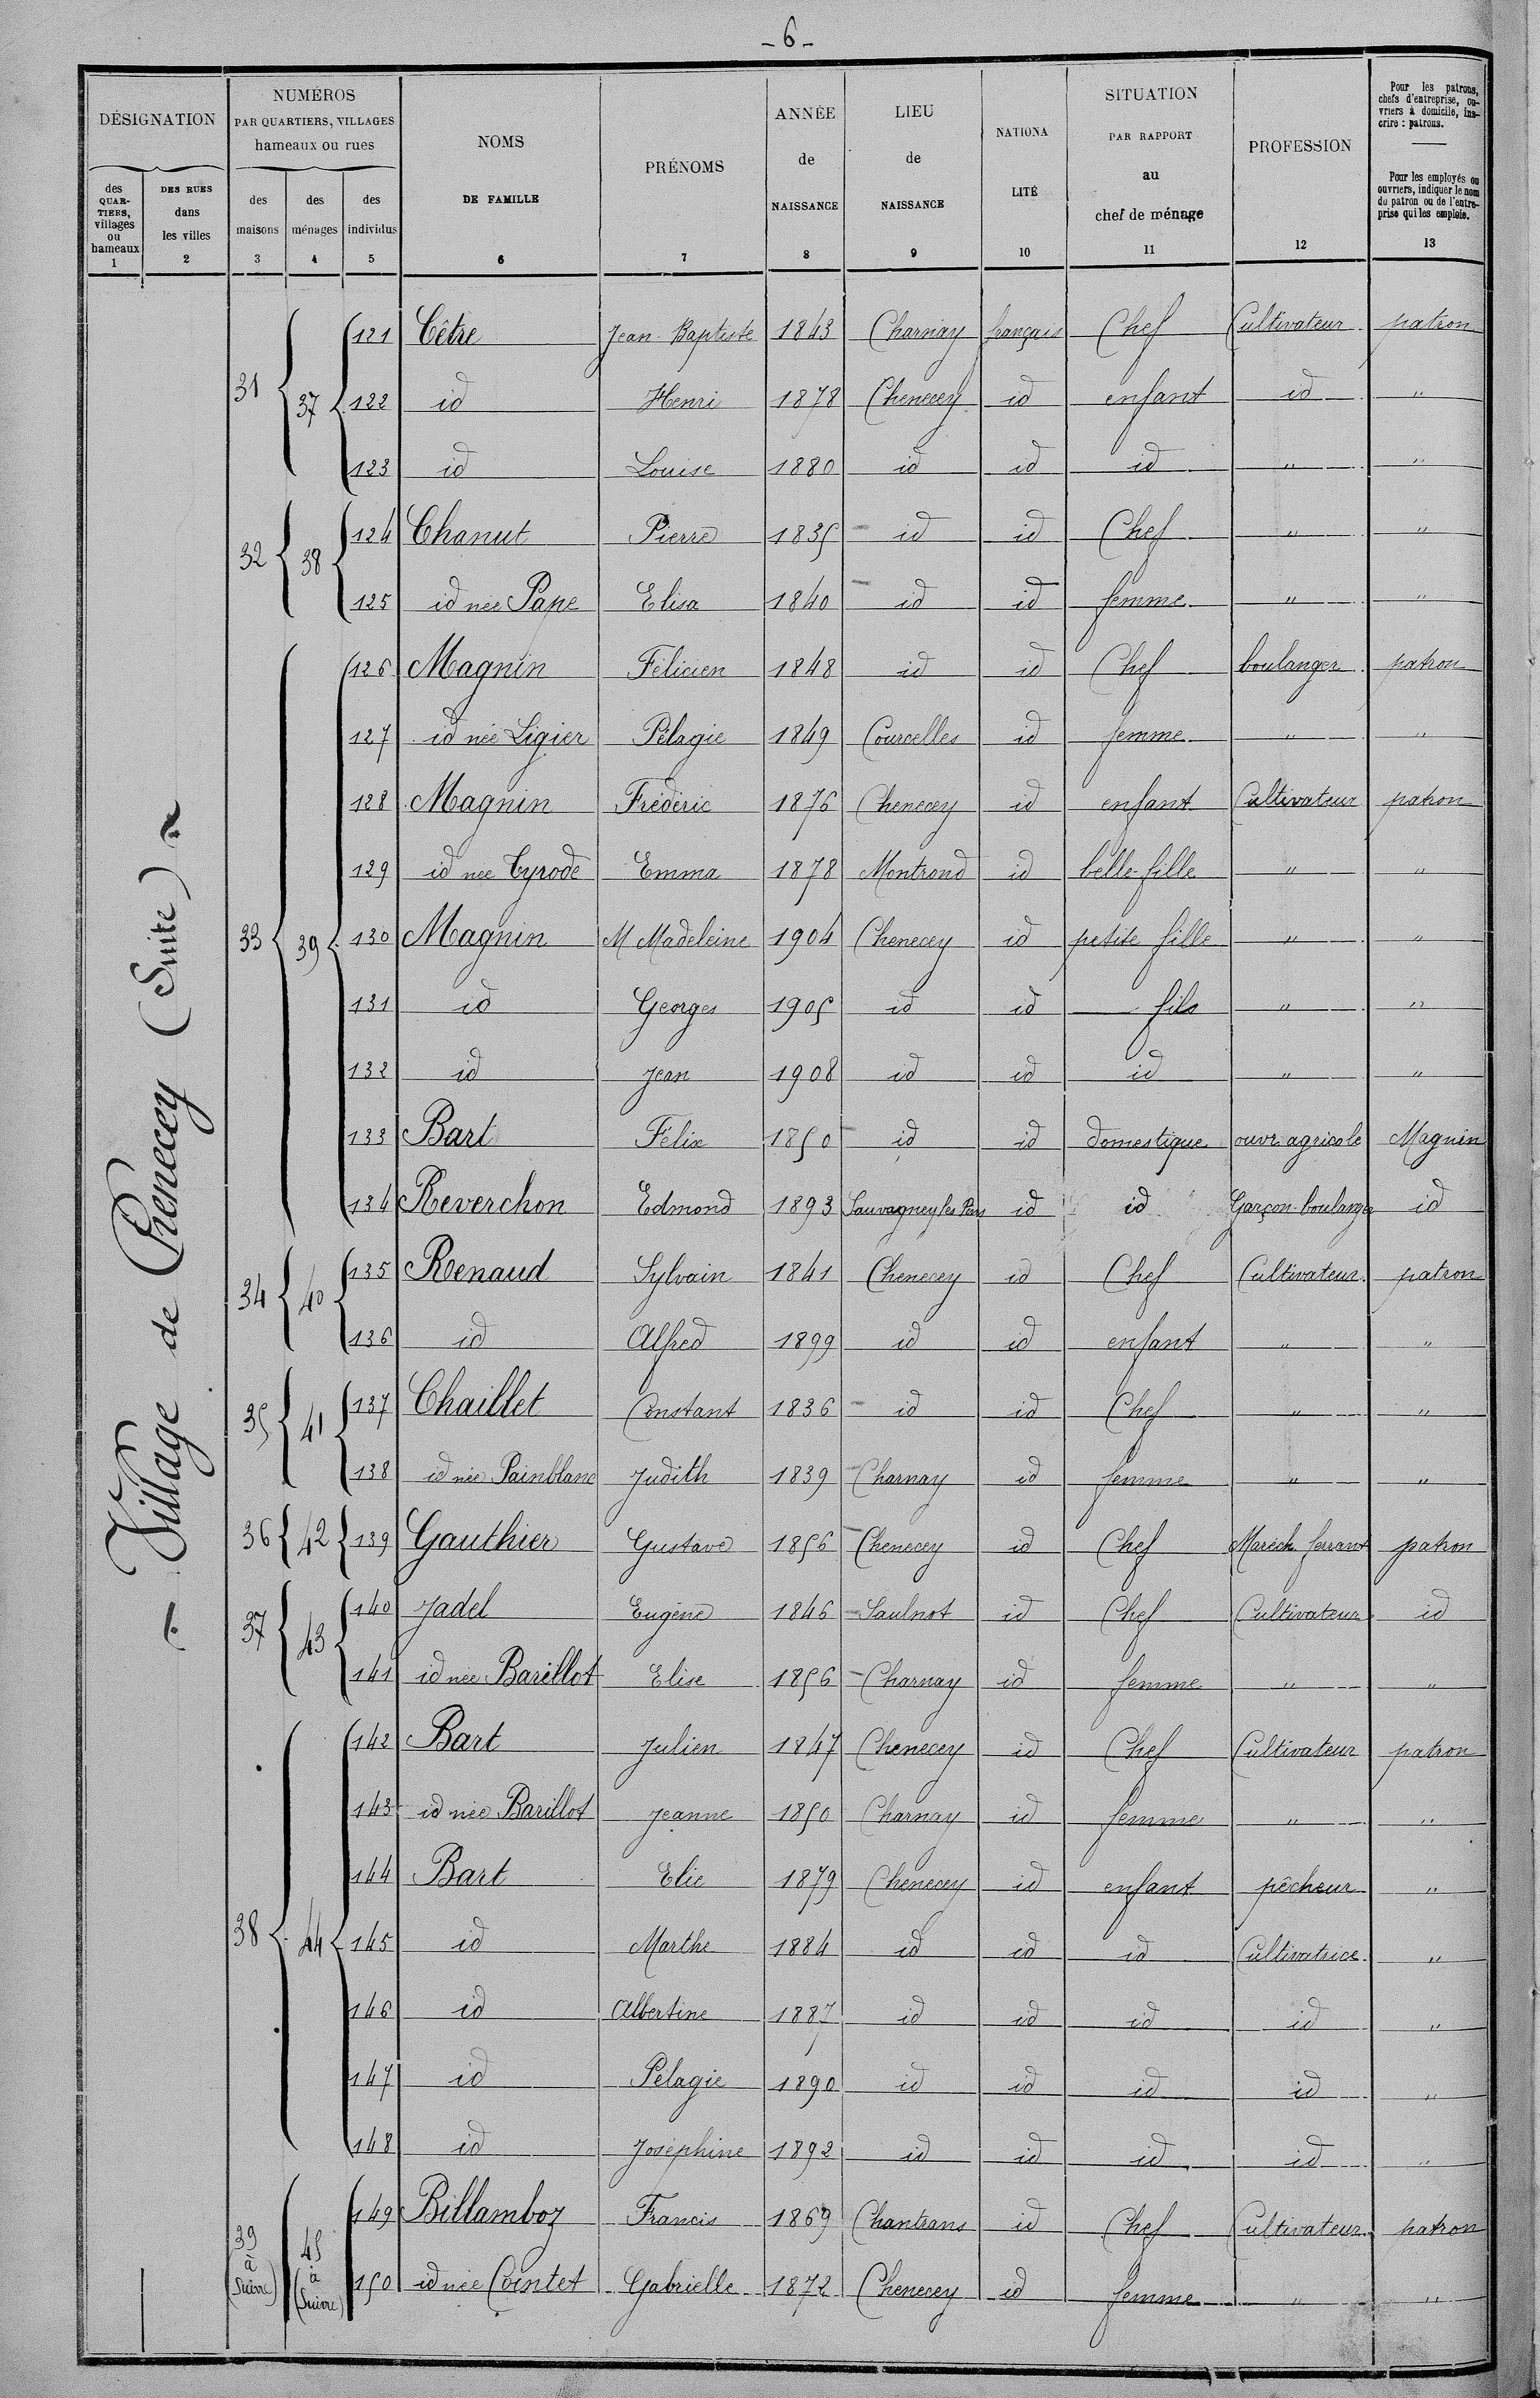 - 6 -
DÉSIGNATION
NUMÉROS
PAR QUARTIERS, VILLAGES
hameaux ou rues
NOMS
DE FAMILLE
PRÉNOMS
ANNÉE
de
NAISSANCE
LIEU
de
NAISSANCE
NATIONA
LITÉ
SITUATION
PAR RAPPORT
au
chef de ménage
PROFESSION
Pour les patrons,
chefs d'entreprise, ou-
vriers à domicile, ins-
crire : patrons.
Pour les employés ou
ouvriers, indiquer le nom
du patron ou de l'entre-
prise qui les emploie.
des
QUAR-
TIERS,
villages
ou
hameaux
DES RUES
dans
les villes
des
maisons
des
ménages
des
individus
1 2 3 4 5 6 7 8 9 10 11 12 13
Village de Chenecey (Suite)
31 37 121 Cêtre Jean-Baptiste 1843 Charnay français Chef Cultivateur patron
122 id Henri 1878 Chenecey id enfant id "
123 id Louise 1880 id id id " "
32 38 124 Chanut Pierre 1835 id id Chef " "
125 id née Pape Elisa 1840 id id femme " "
33 39 126 Magnin Félicien 1848 id id Chef boulanger patron
127 id née Ligier Pélagie 1849 Courcelles id femme " "
128 Magnin Frédéric 1876 Chenecey id enfant Cultivateur patron
129 id née Tyrode Emma 1878 Montrond id belle-fille " "
130 Magnin M Madeleine 1904 Chenecey id petite fille " "
131 id Georges 1905 id id - fils " "
132 id Jean 1908 id id id " "
133 Bart Félix 1850 id id domestique ouvr. agricole Magnin
134 Reverchon Edmond 1893 Sauvagney les id id Garçon-boulanger id
34 40 135 Renaud Sylvain 1841 Chenecey id Chef Cultivateur patron
136 id Alfred 1899 id id enfant " "
35 41 137 Chaillet Constant 1836 id id Chef " "
138 id née Painblanc Judith 1839 Charnay id femme " "
36 42 139 Gauthier Gustave 1856 Chenecey id Chef Maréch. ferrant patron
37 43 140 Jadel Eugène 1846 Saulnot id Chef Cultivateur id
141 id née Barillot Elise 1856 Charnay id femme " "
38 44 142 Bart Julien 1847 Chenecey id Chef Cultivateur patron
143 id née Barillot Jeanne 1850 Charnay id femme " "
144 Bart Elie 1879 Chenecey id enfant pêcheur "
145 id Marthe 1884 id id id Cultivatrice "
146 id Albertine 1887 id id id id "
147 id Pélagie 1890 id id id id "
148 id Joséphine 1892 id id id id "
39 à (Suivre) 45 à (Suivre) 149 Billamboz Francis 1869 Chantrans id Chef Cultivateur patron
150 id née Cointet Gabrielle 1872 Chenecey id femme " "